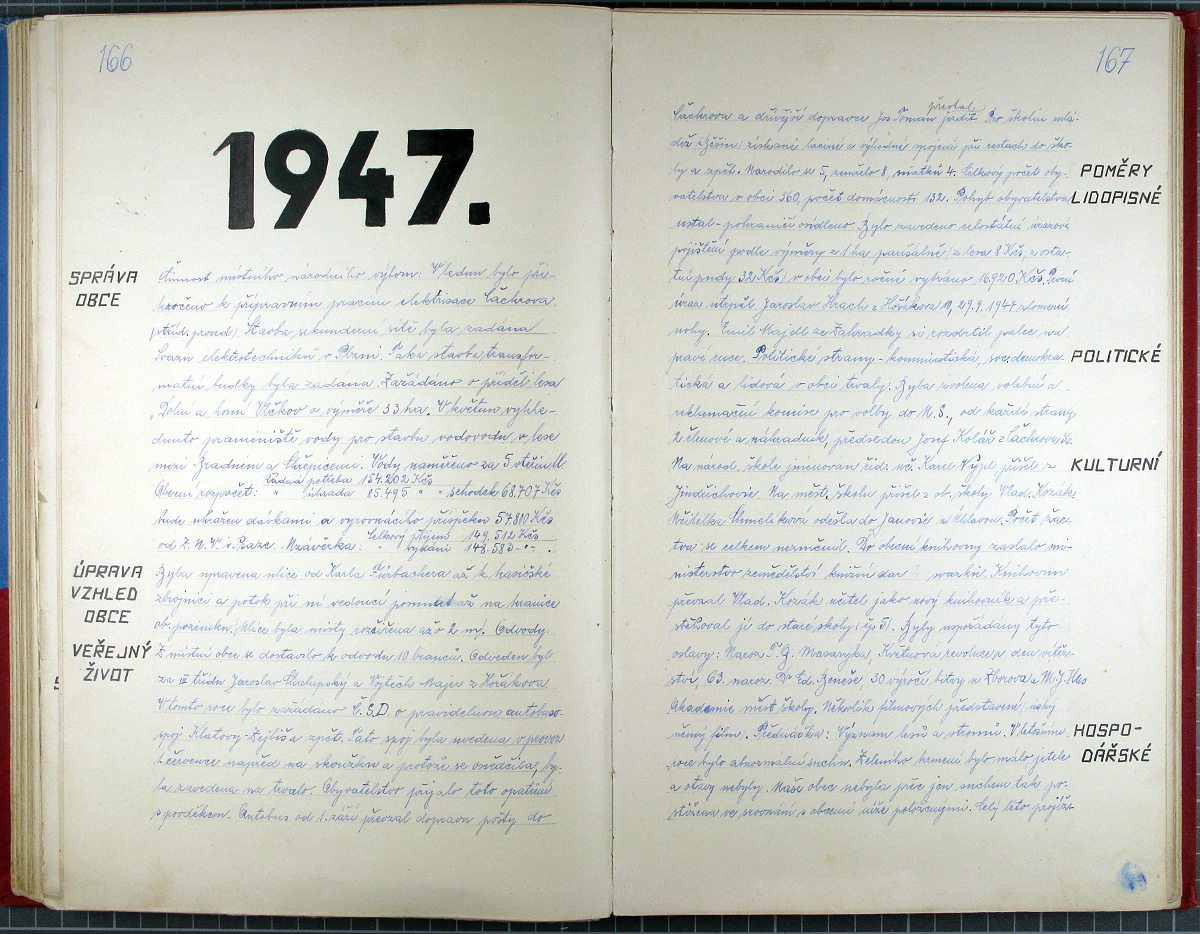 166
1947.
SPRÁVA
OBCE
Činnost místního národního výboru. V lednu bylo při-
kročeno k přípravným pracím elektrisace Čachrova
(stříd. proud) Stavba sekunderní sítě byla zadána
Svazu elektrotechniků v Plzni. Také stavba transfor-
mační budky byla zadána. Zažádáno o příděl lesa
„Dolní a horní Vlčkov o výměře 33 ha. V květnu vyhlé-
dnuto prameniště vody pro stavbu vodovodu v lese
mezi Zradném a Chřepicemi. Vody naměřeno za 5 vteřin
Obecní rozpočet: řádná potřeba 154.202 Kčs
" úhrada 85.495 " - schodek 68.707 Kčs
bude uhrazen dávkami a vyrovnacího příspěvku 57.810 Kčs
od Z. N. V. Uzávěrka: Celkový příjem 149.512 Kčs
" vydání 148.580 - " -
ÚPRAVA
VZHLED
OBCE
Byla upravena ulice od Karla Fürbachera až k hasičské
zbrojnici a potok při ní vedoucí až na hranice
ob. pozemku. Ulice byla místy rozšířena až o 2 m. Odvody:
VEŘEJNÝ
ŽIVOT
Z místní obce se dostavilo k odvodu 10 branců. Odveden byl
za třídu Jaroslav Chalupský a Vojtěch Majer z Hořákova.
V tomto roce bylo zažádáno Č.S.D. o pravidelnou autobuso-
spoj Klatovy-Dejšiša a zpět. Tato spoj byla uvedena v provoz
1 července napřed na zkoušku a protože se osvědčila, by-
la zavedena na trvalo. Obyvatelstvo přijalo toto opatření
s povděkem. Autobus od 1. září převzal dopravu pošty do
167
Čachrova a dřívější dopravce Jos. Toman přestal jezdit. Pro školní mlá-
dež z Běšin získáné laciné a výhodné spojení při cestách do ško-
ly a zpět. Narodilo se 5, zemřelo 8, sňatků 4. Celkový počet oby-
POMĚRY
LIDOPISNÉ
vatelstva v obci 360, počet domácností 132. Pohyb obyvatelstva
ustal - pohraničí osídleno. Bylo zavedeno celostátní úrazové
pojištění podle výměry z 1 ha paušálně (z lesa 8 Kčs, z osta-
tní půdy 32 Kčs) v obci bylo ročně vybráno 16.920 Kčs. První
úraz utrpěl Jaroslav Hrach z Hořákova 11, 29.9. 1947 zlomení
nohy. Emil Majdl ze Zahrádky si rozdrtil palec na
pravé ruce. Politické strany - komunistická, soc. demokra-
POLITICKÉ
tická a lidová v obci trvaly. Byla zvolena volební a
reklamační komise pro volby do N.S., od každé strany
2 členové a náhradník, předsedou Josef Kolář z Čachrova
Na národ. škole jmenován říd. uč. Karel Vypl, přišel z
KULTURNÍ
Jindřichovic. Na měšť. školu přišel z ob. školy Vlad. Kozák.
Učitelka Chmelíková odešla do Janovic n/Úhlavou. Počet žac-
tva se celkem nezměnil. Do obecní knihovny zaslalo mi-
nisterstvo zemědělství knižní dar svazků. Knihovnu
převzal Vlad. Kozák učitel jako nový knihovník a pře-
stěhoval ji do staré školy čp 51. Byly uspořádány tyto
oslavy: Naroz. T. G. Masaryka, Květnová revoluce a den vítěz-
ství, 63. naroz. Dr Ed. Beneše, 30 výročí bitvy u Zborova a M. J. Hus
Akademie měšť. školy. Několik filmových představení úzký
němý film. Přednáška: Význam lesů a stromů. V letošním
HOSPO-
DÁŘSKÉ
roce bylo abnormální sucho. Zeleného krmení bylo málo, jetele
a otavy nebyly. Naše obec nebyla přec jen suchem tak po-
stižena ve srovnání s obcemi níže položenými. Celý léto projíž-